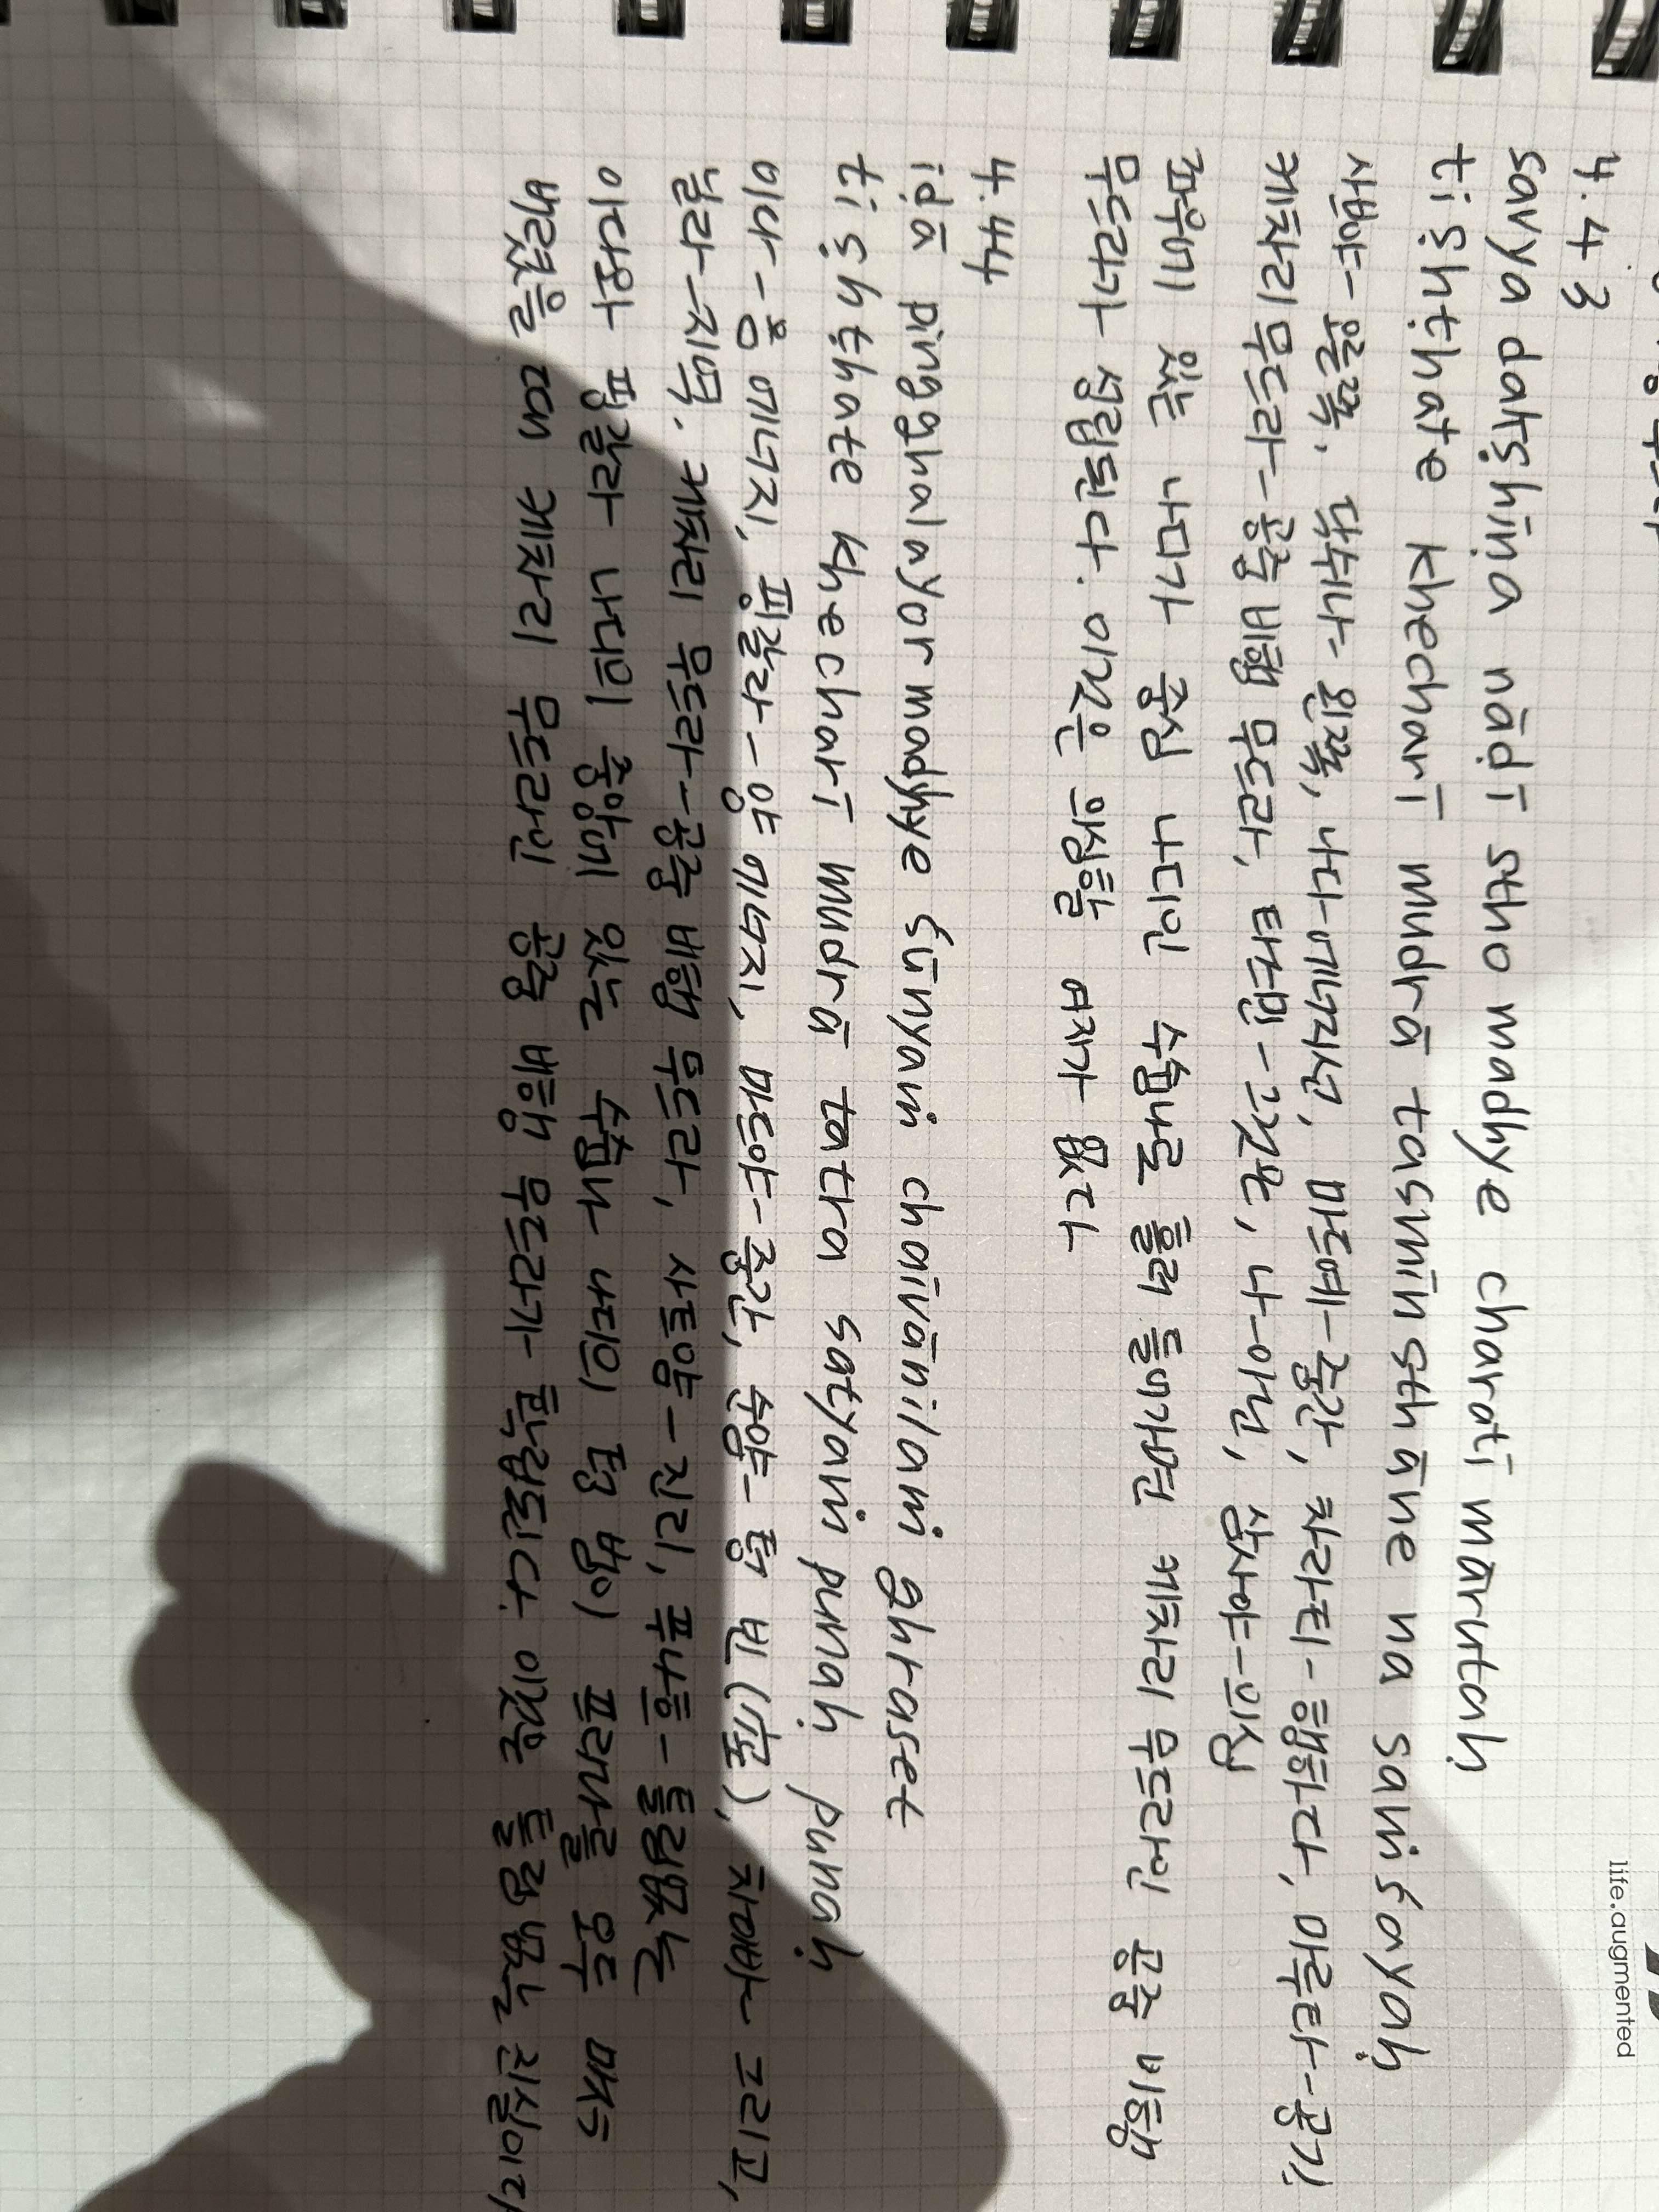 life.augmented
4.43
savya datṣhiṇa nāḍī stho madhye charatī mārutaḥ
tiṣhṭhate khecharī mudrā tasminsthāne na saṁśayaḥ
사뱌-오른쪽, 닥쉬나-왼쪽, 나디-에너지선, 마드예-중간, 차라티-행하다, 마루타-공기
케차리무드라-공중 비행 무드라, 타스민-그것은, 나-아닌, 삼사야-의심
좌우에 있는 나디가 중심 나디인 수슘나로 흘러 들어가면 케차리 무드라인 공중 비행
무드라가 성립된다. 이것은 의심할 여지가 없다
4.44
iḍā pingghalayormadhye śūnyaṁ chaivānilaṁ ghraset
tiṣhṭhate khecharī mudrā tatra satyaṁ punaḥ punaḥ
이다-음 에너지, 핑갈라-양 에너지, 마드야-중간, 순야-텅 빈(空), 차에바-그리고,
닐라-지멱. 케차리 무드라-공중 비행 무드라, 사트얌-진리, 푸나흐-틀림없는
이다와 핑갈라 나디의 중앙에 있는 수슘나 나디의 텅 빔이 프라나를 모두 마셔
버렸을 때 케차리 무드라인 공중 비행 무드라가 확립된다. 이것은 틀림없는 진실이다